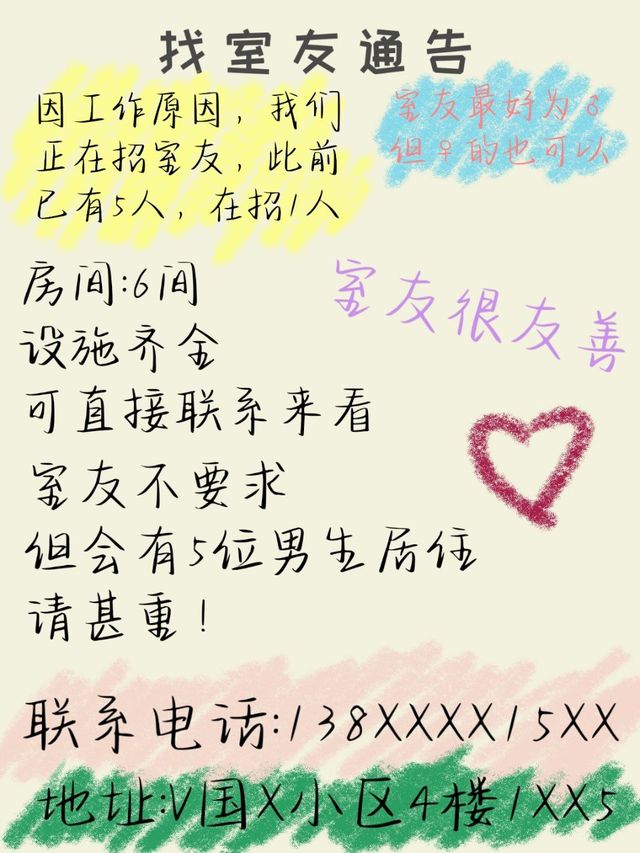 找室友通告
因工作原因，我们
正在招室友，此前
已有5人，在招1人
室友最好为♂
但♀的也可以
房间:6间
室友很友善
设施齐全
可直接联系来看
室友不要求
但会有5位男生居住
请甚重！
联系电话:138XXXX15XX
地址:V国X小区4楼1XX5